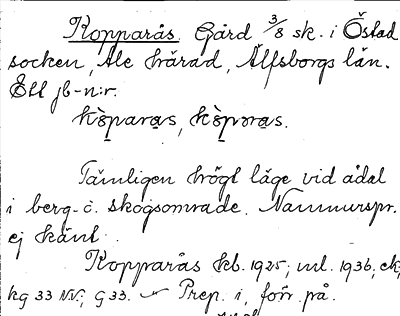 Kopparås Gård 3/8 sk. i Östad
socken, Ale härad, Älfsborgs län.
Ett jb-n:r.
kòparas, kòpəras.
Tämligen högt läge vid ådal
i berg- o. skogsområde. Namnurspr.
ej känt.
Kopparås kb. 1925; ml. 1936, ek,
hg 33 NV; G 33. — Prep. i, förr på.